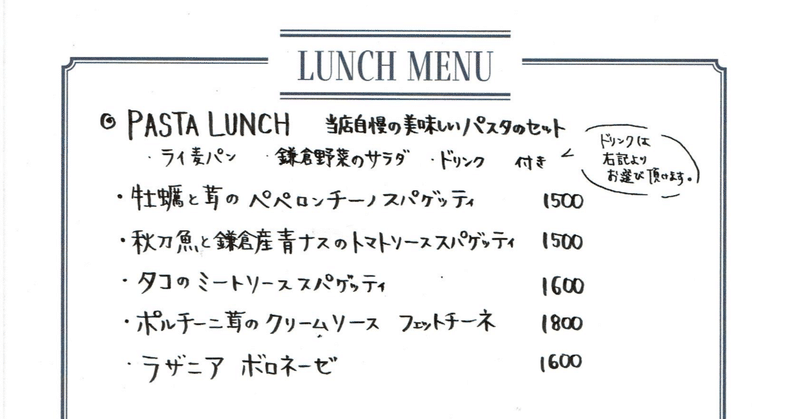 LUNCH MENU
◎ PASTA LUNCH 当店自慢の美味しいパスタのセット
・ライ麦パン ・鎌倉野菜のサラダ ・ドリンク 付き
ドリンクは
右記より
お選び頂けます。
・牡蠣と茸の ペペロンチーノスパゲッティ 1500
・秋刀魚と鎌倉産青ナスのトマトソーススパゲッティ 1500
・タコのミートソーススパゲッティ 1600
・ポルチーニ茸のクリームソース フェットチーネ 1800
・ラザニア ボロネーゼ 1600